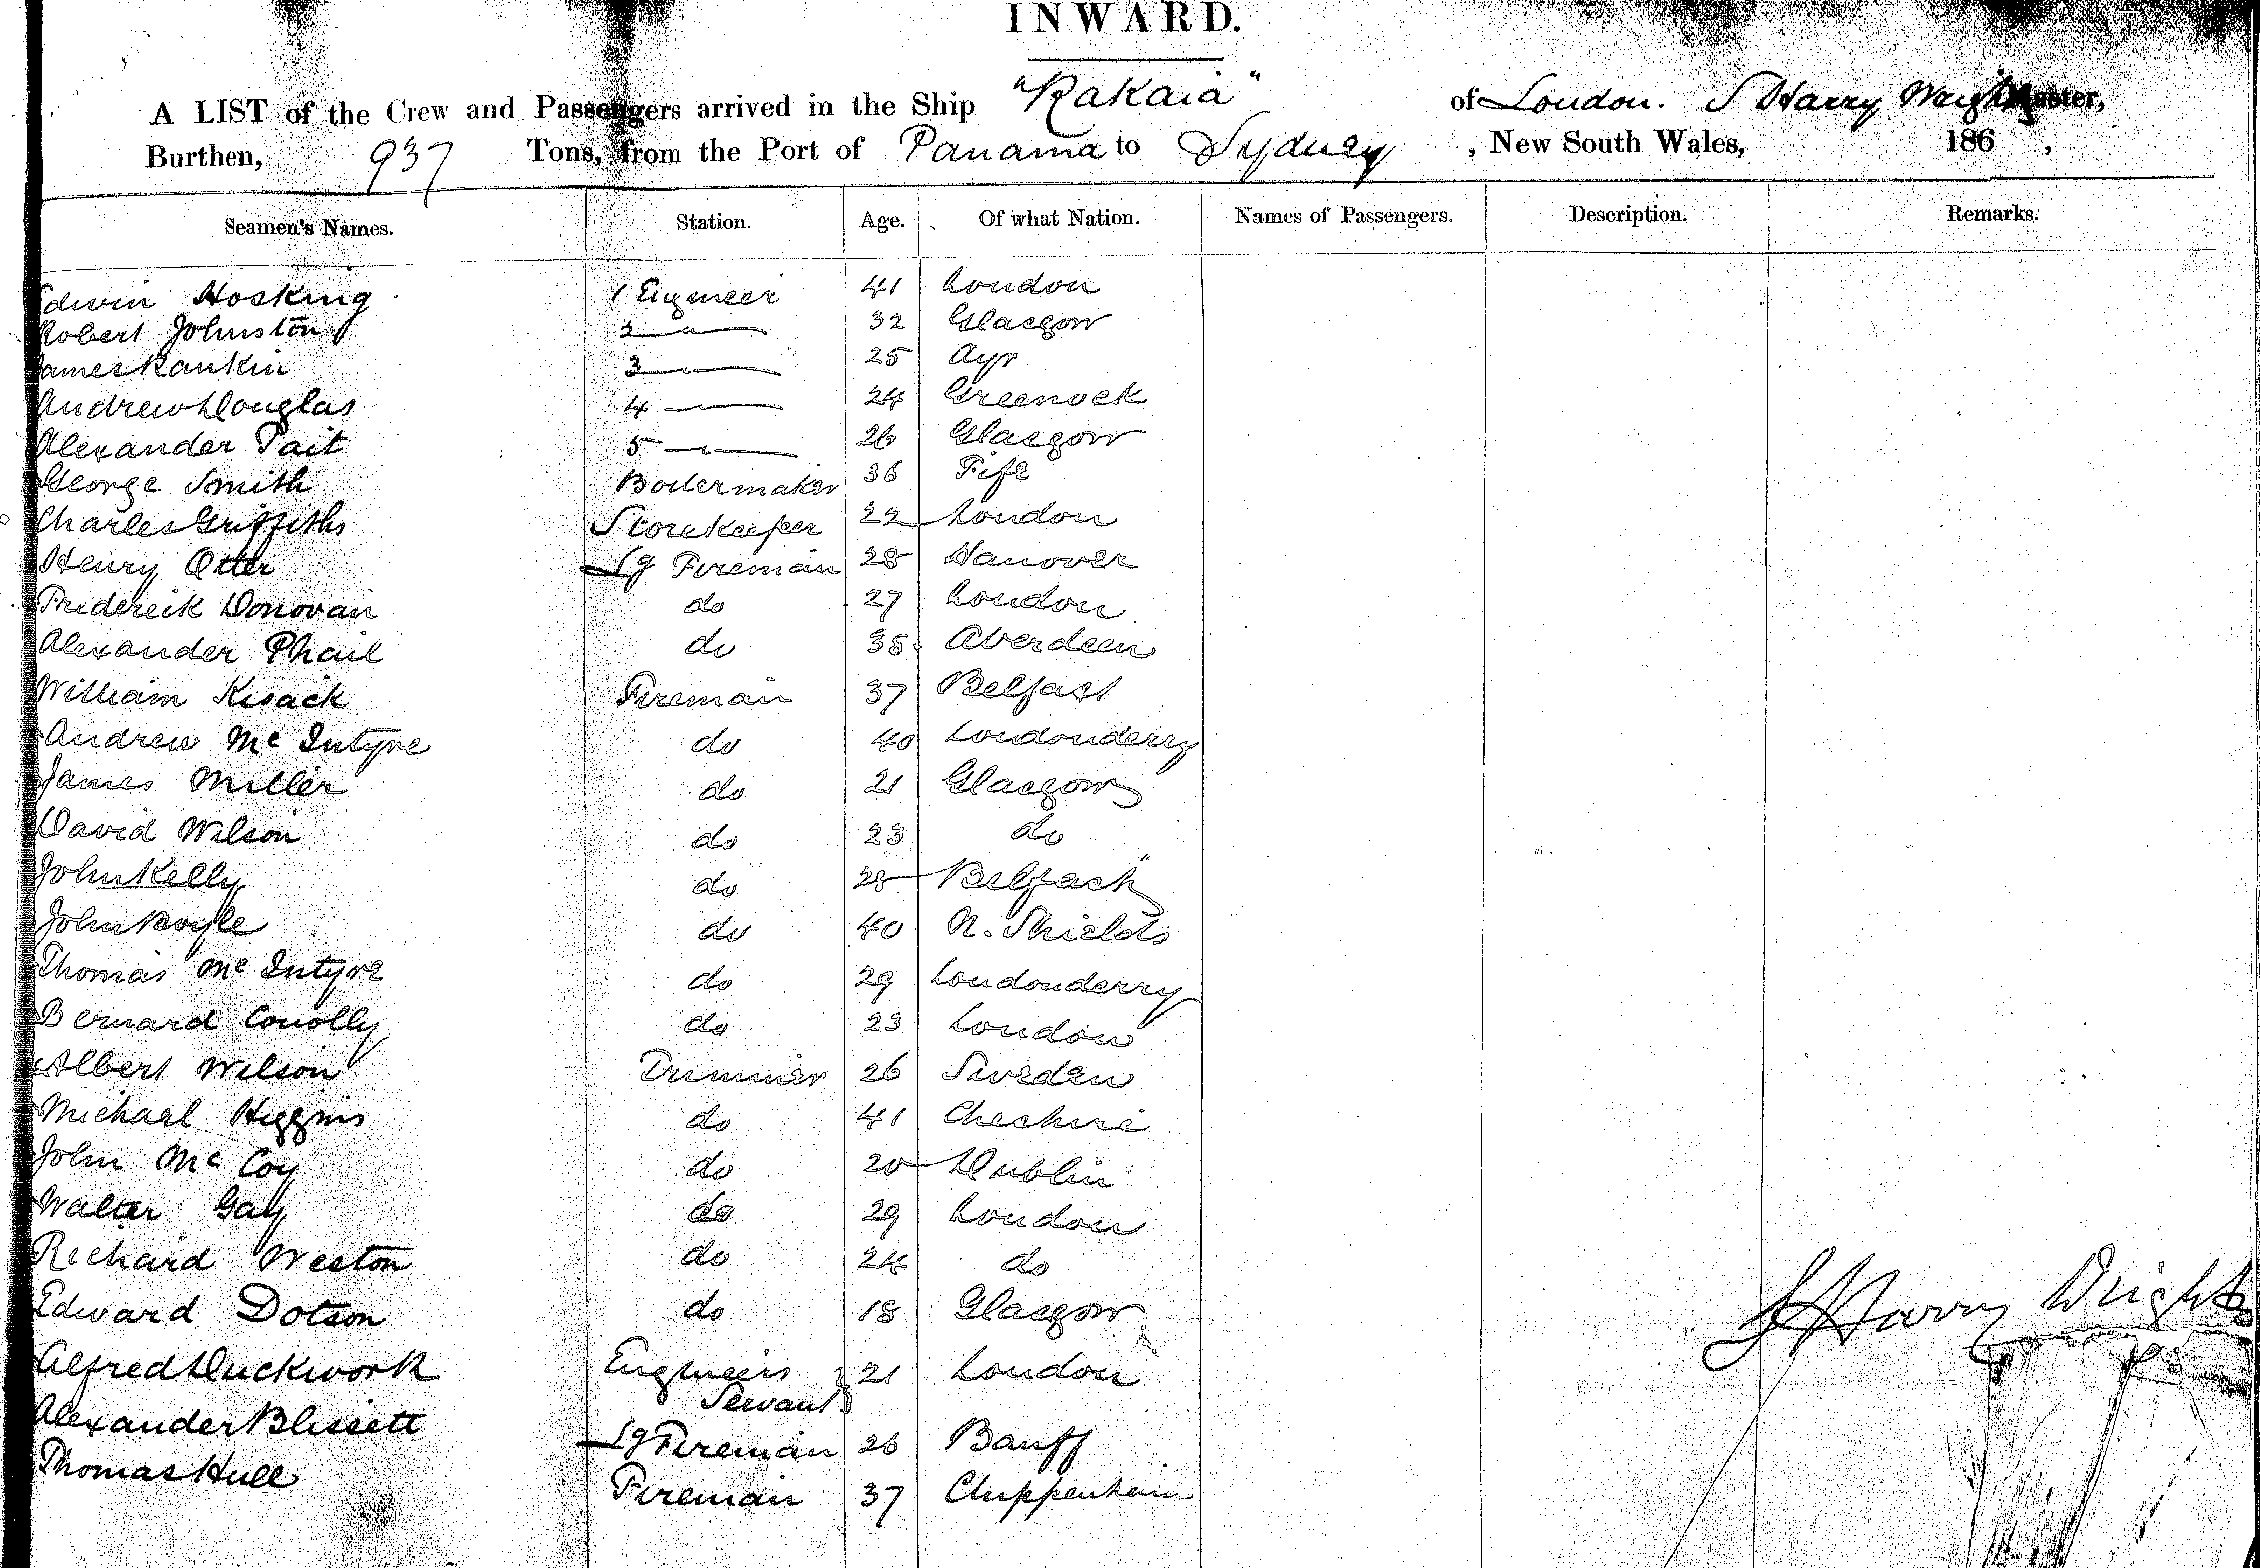 INWARD.
A LIST of the Crew and Passengers arrived in the Ship "Rakaia" of London. J Harry Wright Master,
Burthen, 937 Tons, from the Port of Panama to Sydney, New South Wales, 186 .
Seamen's Names. Station. Age. Of what Nation. Names of Passengers. Description. Remarks.
Edwin Hosking 1 Engineer 41 London
Robert Johnston 2 — " — 32 Glasgow
James Rankin 3 — " — 25 Ayr
Andrew Douglas 4 — 24 Greenock
Alexander Tait 5 — " — 26 Glasgow
George Smith Boilermaker 36 Fife
Charles Griffiths Storekeeper 22 London
Henry Otter Lg Fireman 28 Hanover
Fridereik Donovan do 27 London
Alexander Phail do 35 Aberdeen
William Kisack Fireman 37 Belfast
Andrew Mc Intyre do 40 Londonderry
James Miller do 21 Glasgow
David Wilson do 23 do
John Kelly do 28 Belfast
John Boyle do 40 N. Shields
Thomas Mc Intyre do 29 Londonderry
Bernard Conolly do 23 London
Albert Wilson Trimmer 26 Sweden
Michael Higgins do 41 Cheshire
John Mc Coy do 20 Dublin
Walter Gay do 29 London
Richard Weston do 24 do
Edward Dotson do 18 Glasgow
Alfred Duckwork Engineers Servant 21 London
Alexander Blissett Lg Fireman 26 Banff
Thomas Hull Fireman 37 Chippenham
J Harry Wright